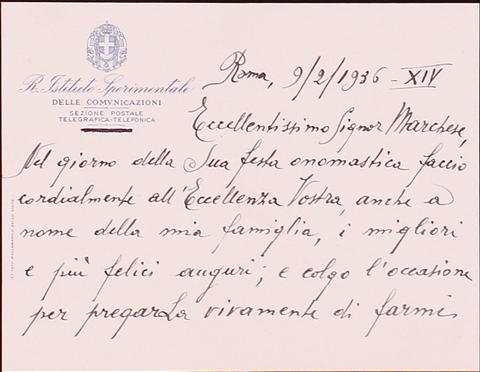 R. Istituto Sperimentale
DELLE COMUNICAZIONI
SEZIONE POSTALE
TELEGRAFICA-TELEFONICA
Roma, 9/2/1936 - XIV
Eccellentissimo Signor Marchese,
Nel giorno della Sua festa onomastica faccio
cordialmente all'Eccellenza Vostra, anche a
nome della mia famiglia, i migliori
e più felici auguri; e colgo l'occasione
per pregarLa vivamente di farmi